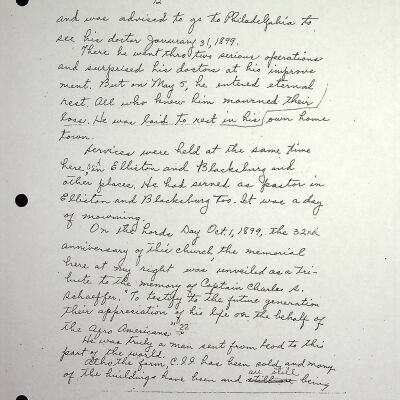 12
and was advised to go to Philadelphia to
see his doctor January 31, 1899.
There he went thro two serious operations
and surprised his doctors at his improve
ment. But on May 5, he entered eternal
rest. All who knew him mourned their
loss. He was laid to rest in his own home
town.
Services were held at the same time
here, in Elliston and Blacksburg and
other places. He had served as pastor in
Elliston and Blacksburg too. It was a day
of mourning.
On the Lords Day Oct. 1, 1899, the 32nd
anniversary of this church the memorial
here at my right was unveiled as a tri-
bute to the memory of Captain Charles S.
Schaeffer. "To testify to the future generation
their appreciation of his life on the behalf of
the Afro Americans."
He was truly a man sent from God to this
part of the world.
Altho the farm, C.I.I. has been sold and many
of the buildings have been and are still being